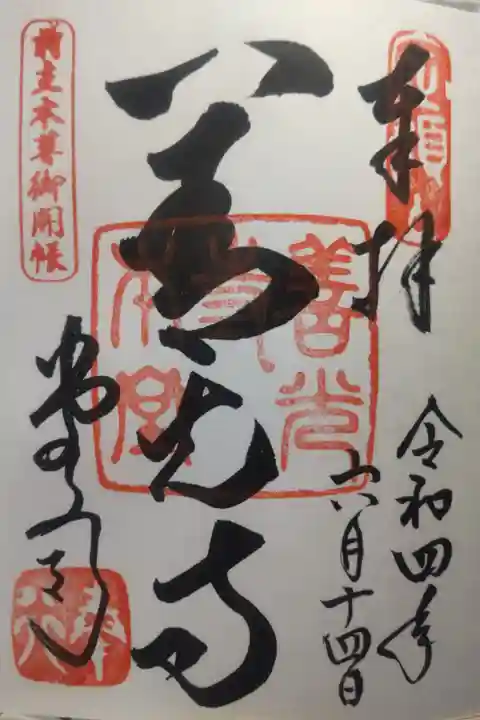 奉拝
令和四年
六月十四日
善光寺
善光
寺
本堂
前立本尊御開帳